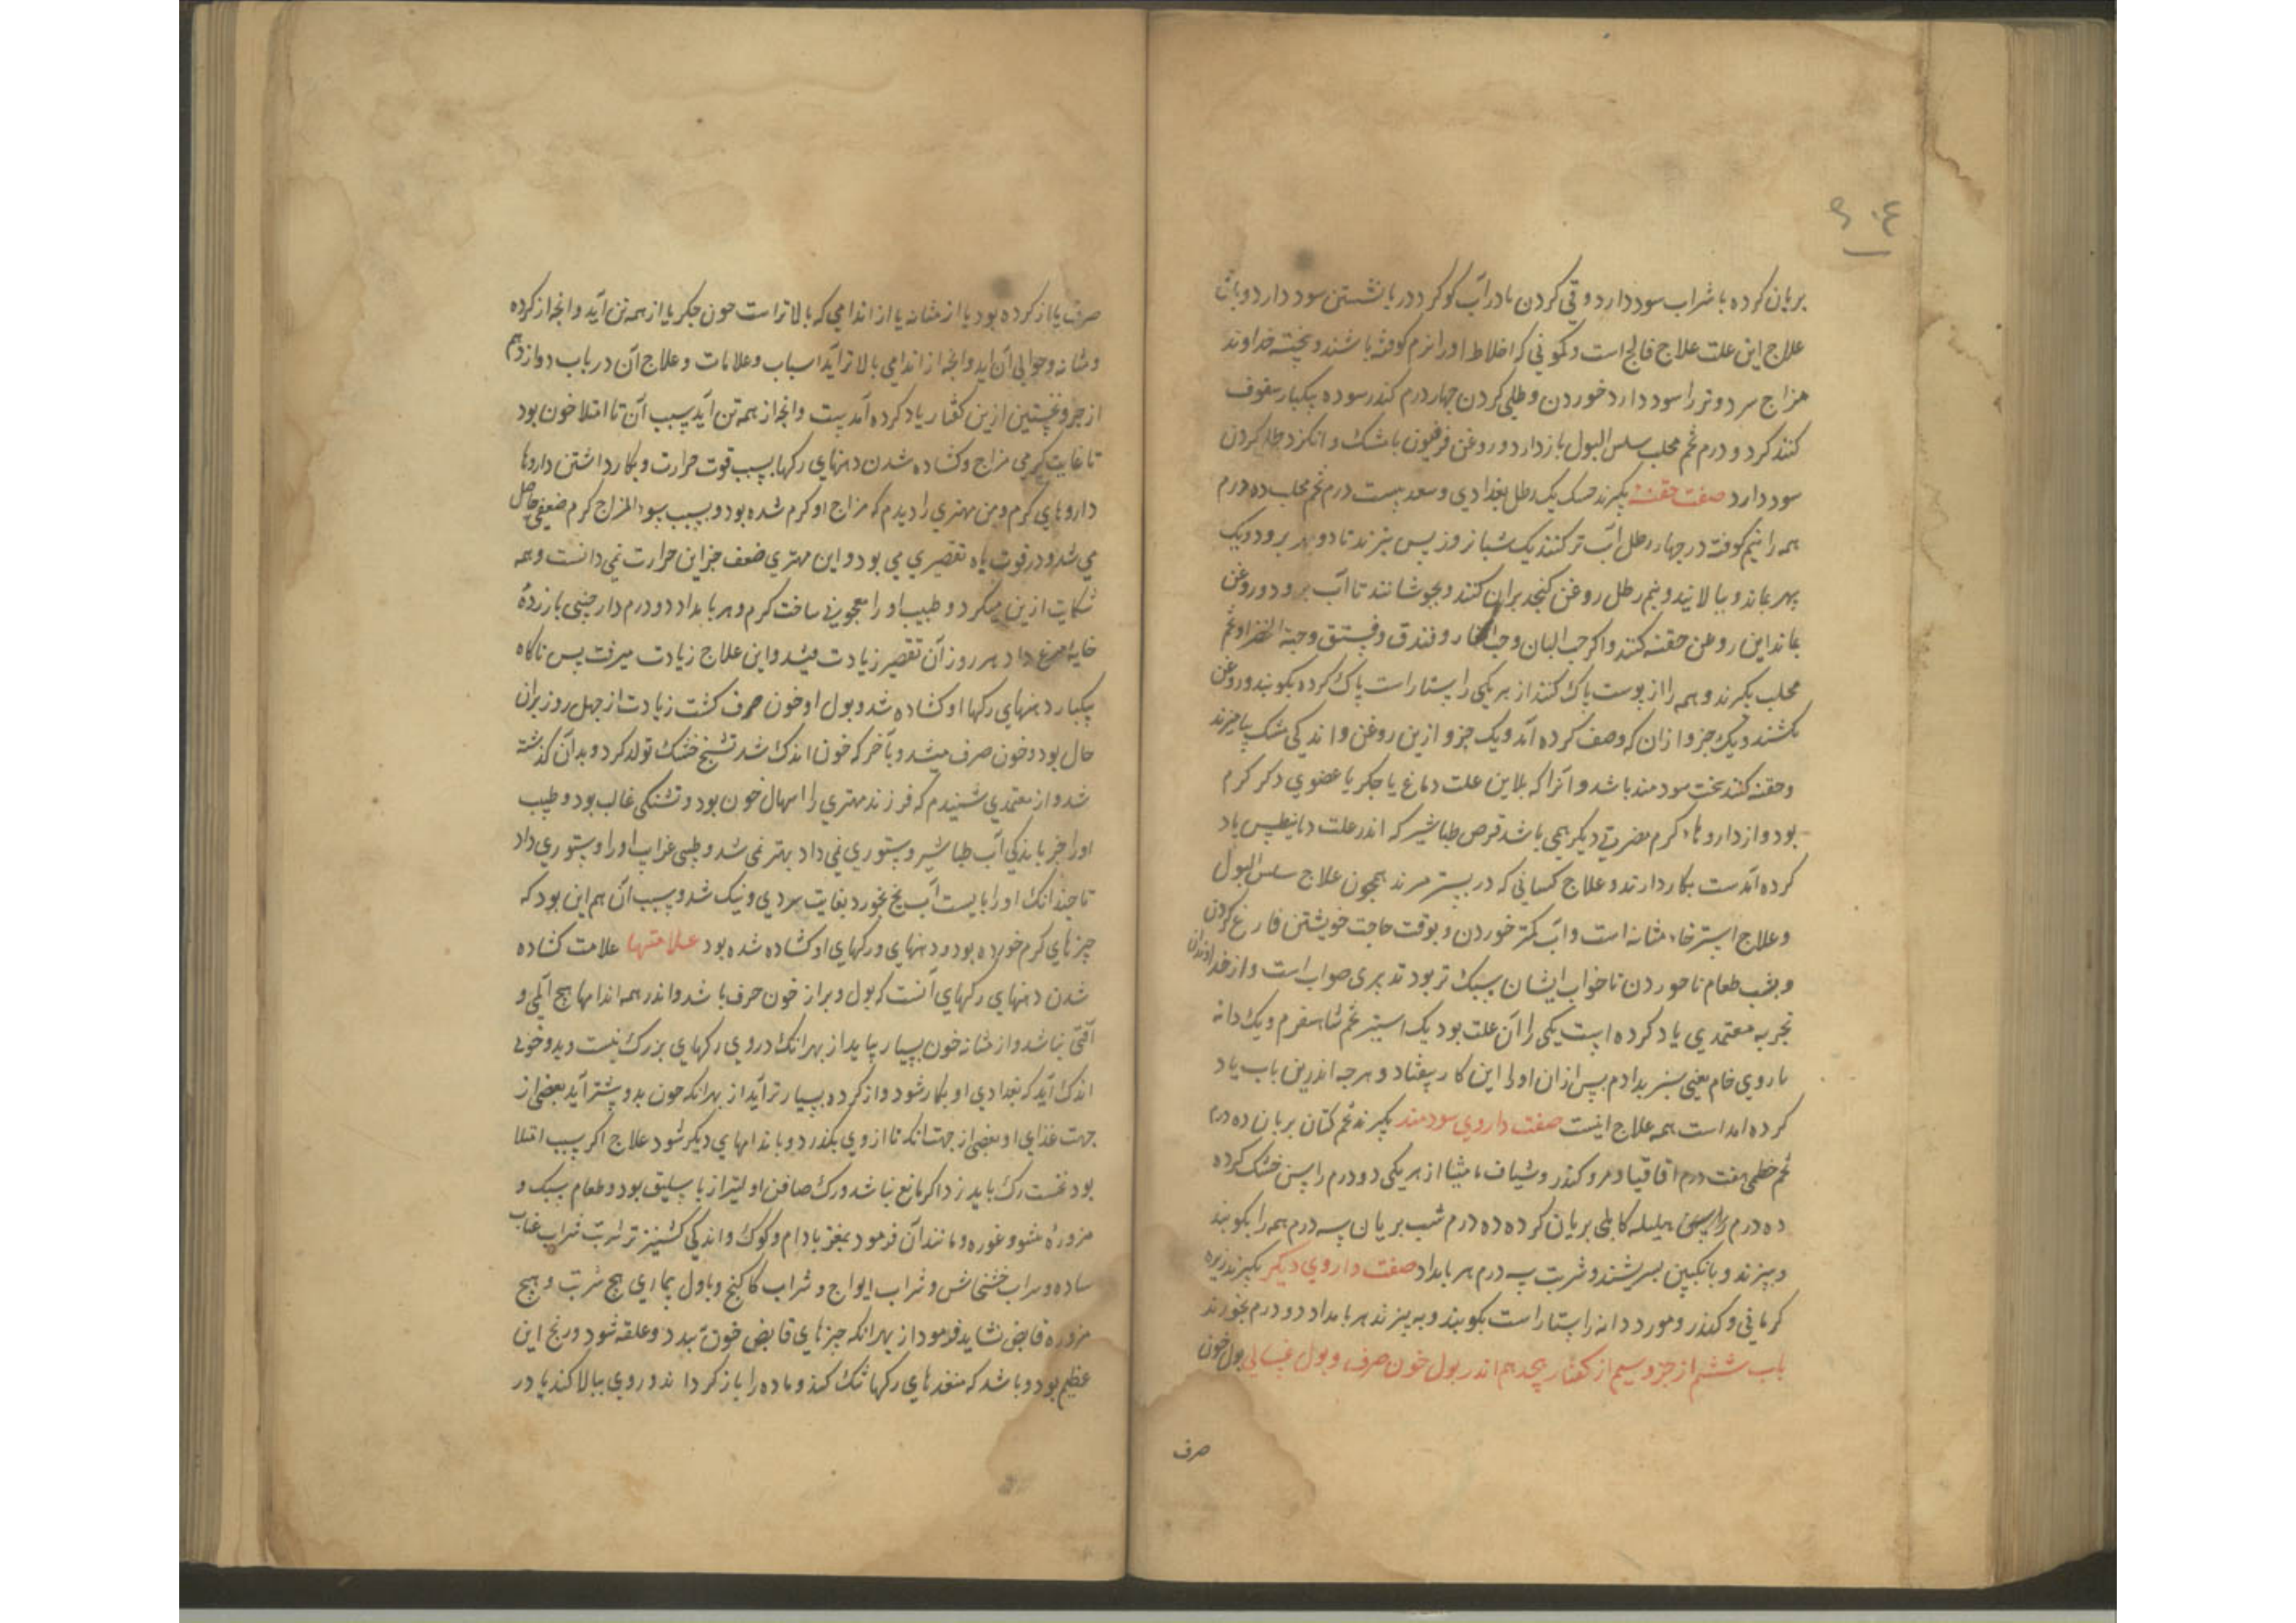 ٩٠٤
بریان کرده با شراب سود دارد و قی کردن مادر آب کوکرد در بانشستن سود دارد و باش
علاج این علت علاج فالج است و کمونی که اخلاط او را نرم کوفته باشند و پخته خداوند
مزاج سرد و تر را سود دارد خوردن و طلی کردن چهار درم کندر سوده یکبار سفوف
کنند کرد و درم تخم محلب سلس البول باز دارد و روغن فرفیون با مشک و انکزد طلا کردن
سود دارد صفت حقنه بکیرند حسک یک رطل بغدادی و سعد بیست درم تخم محلب ده درم
همه را نیم کوفته در چهار رطل آب تر کنند یک شبانروز پس بپزند تا دو بهر برود و یک
بهر بماند و بپالایند و نیم رطل روغن کنجد بران کنند و بجوشانند تا آب برود و روغن
بماند این روغن حقنه کنند و اکر حب البان و حب الغار و فندق و فستق و حبة الخضرا و تخم
محلب بکیرند و همه را از پوست پاک کنند از هر یکی راستاراست پاک کرده بکوبند و روغن
بکشند و یک جزو از ان که وصف کرده آمد و یک جزو ازین روغن و اندکی مشک بیامیزند
و حقنه کنند سخت سودمند باشد و انرا که بااین علت دماغ یا جکر یا عضوی دکر کرم
بود و از داروهاء کرم مضرتی دیکر همی باشد قرص طباشیر که اندر علت دیانیطس یاد
کرده آمدست بکار دارند و علاج کسانی که در بستر میزند همچون علاج سلس البول
و علاج استرخاء مثانه است و آب کمتر خوردن و بوقت حاجت خویشتن فارغ کردن
و بشب طعام ناخوردن تا خواب ایشان سبک تر بود تدبیری صواب است و از خداوندان
تجربه معتمدی یاد کرده است یکی را آن علت بود یک استیر تخم شاهسفرم و یک دانه
ماروی خام یعنی سبز بدادم پس از ان او را این کار بیفتاد و هرچه اندرین باب یاد
کرده امد است همه علاج اینست صفت داروی سودمند بکیرند تخم کتان بریان ده درم
تخم خطمی هفت درم اقاقیا و مر و کندر و شیاف مامیثا از هر یکی دو درم راسن خشک کرده
ده درم هلیله کابلی بریان کرده ده درم شب بریان سه درم همه را بکوبند
و ببیزند و بانکبین بسرشند و شربت سه درم هر بامداد صفت داروی دیکر بکیرند زیره
کرمانی و کندر و مورد دانه راستاراست بکوبند و ببیزند هر بامداد دو درم بخورند
باب ششم از جزو سیم از کفتار هجدهم اندر بول خون صرف و بول غسالی بول خون
صرف
صرف یا از کرده بود یا از مثانه یا از اندامی که بالاتر است چون جکر یا از همه تن آید و انچه از کرده
و مثانه و حوالی آن آید و انچه از اندامی بالاتر آید اسباب و علامات و علاج آن در باب دوازدهم
از جزو نخستین ازین کفتار یاد کرده آمدست و انچه از همه تن آید سبب آن تا امتلا خون بود
تا غایت کرمی مزاج و کشاده شدن دهنهای رکها بسبب قوت حرارت و بکار داشتن داروها
داروهای کرم و من مهتری را دیدم که مزاج او کرم شده بود و بسبب سوء المزاج کرم ضعفی حاصل
می شد و در قوت باه تقصیری می بود و این مهتری ضعف جز این حرارت نمی دانست و همه
شکایت ازین میکرد و طبیب او را معجونی ساخت کرم و هر بامداد دو درم دارچینی با زردهٔ
خایه مرغ داد هر روز آن تقصیر زیادت میشد و این علاج زیادت میرفت پس ناکاه
یکبار دهنهای رکهاء او کشاده شد و بول او خون صرف کشت زیادت از چهل روز بران
حال بود و خون صرف میشد و بآخر که خون اندک شد تشنج خشک تولد کرد و بدان کذشته
شد و از معتمدی شنیدم که فرزند مهتری را اسهال خون بود و تشنکی غالب بود و طبیب
او را جز باندکی آب طباشیر دستوری نمی داد بهتر نمی شد و طبیبی غراب او را دستوری داد
تا چندانک او را بایست آب یخ بخورد بغایت سردی و نیک شد و سبب آن هم این بود که
چیزهای کرم خورده بود و دهنهای ورکهای او کشاده شده بود علامتها علامت کشاده
شدن دهنهای رکهای آنست که بول و براز خون صرف باشد و اندر همه اندامها هیچ المی و
آفتی نباشد و از مثانه خون بسیار نیاید از بهر انک در وی رکهای بزرک نیست و بدو خونی
اندک آید که بغدادی او بکار شود و از کرده بسیارتر آید از بهر انکه خون بدو بیشتر آید بعضی از
جهت غذای او و بعضی از جهت انکه تا از وی بکذرد و باندامهای دیکر شود علاج اکر سبب امتلا
بود نخست رک باید زد اکر مانع نباشد و رک صافن اولیتر از باسلیق بود و طعام سبک و
مزورهٔ مشو و غوره و مانند آن فرمود بمغز بادام و کوک و اندکی کشنیز تر شربت شراب عناب
ساده و شراب خشخاش و شراب امواج و شراب کاکنج و باول بیماری هیچ شربت و هیچ
مزوره قابض نشاید فرمود از بهر انکه چیزهای قابض خون ببندد و علقه شود و رنج این
عظیم بود و باشد که منفذهای رکها تنک کند و ماده را باز کرداند و روی ببالا کند یا در